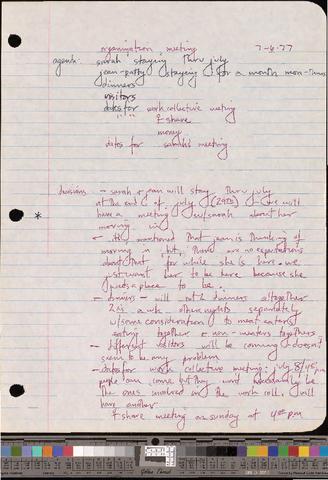 organization meeting 7-6-77
agenda: sarah staying thru july
jean-patty staying for a month mon-Thurs
dinners
visitors
dates for work collective meeting
" " " F share
money
dates for sarah's meeting
decisions - sarah + jean will stay thru july
at the end of july (29TH) we will
* have a meeting w/sarah about her
moving in
- mentioned that jean is thinking of
moving in, but, there are no expectations
about that for while she is here. we
just want her to be here because she
needs a place to be.
- dinners - will eat dinners altogether
2xs a wk. other nights separately
w/some consideration to meat eaters
eating together or non-eaters together
- different visitors will be coming + doesn't
seem to be any problem
- dates for work collective meeting: july 8/45pm
people can come but they wont necessarily be
the ones involved in the work coll. will
have another.
F share meeting on sunday at 4:00 pm